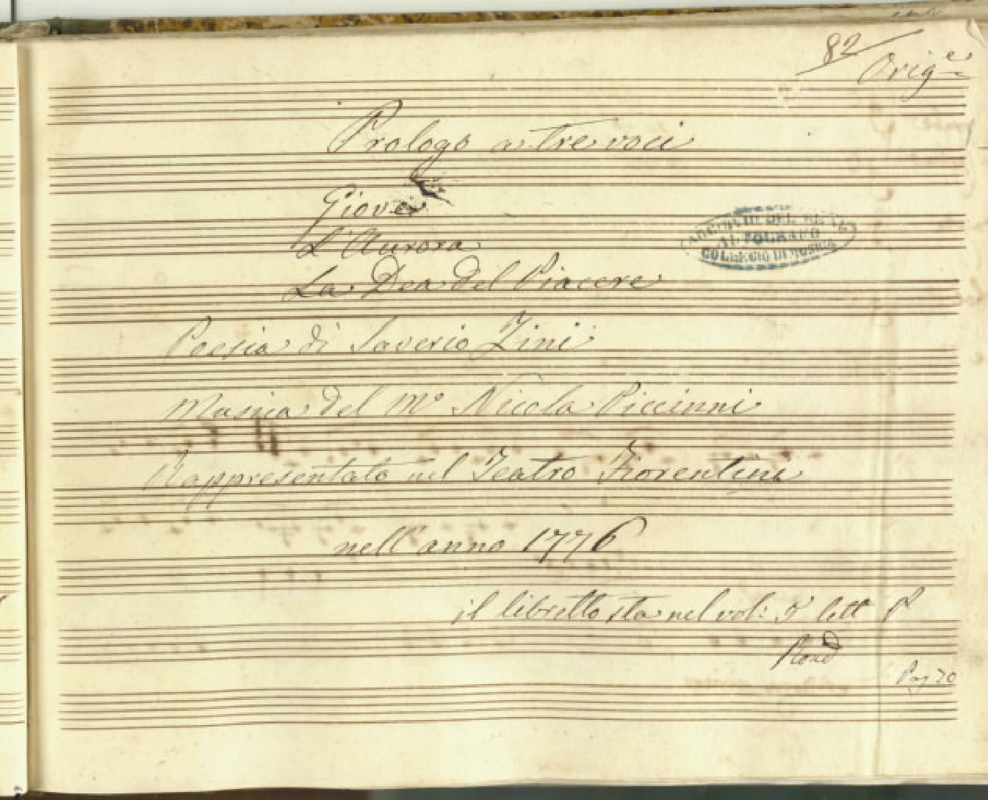 82
Orig.e
Prologo a tre voci
Giove
L'Aurora
La Dea del Piacere
Poesia di Saverio Zini
Musica del Mo Nicola Piccinni
Rappresentato nel Teatro Fiorentini
nell'anno 1776
il libretto sta nel vol: 5o lett P
Pag 70
ARCHIVIO DEL REAL
COLLEGIO DI MUSICA